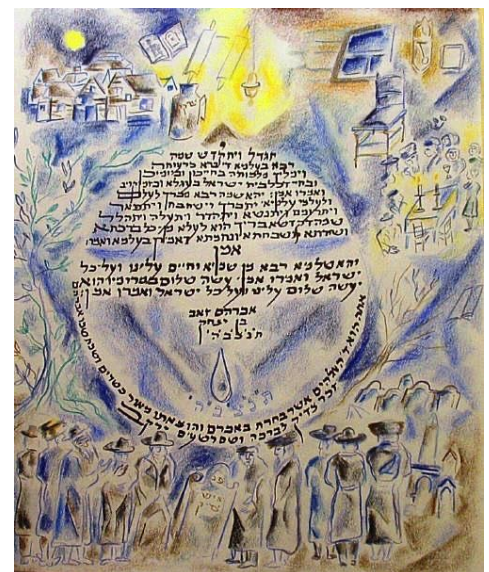 יתגדל ויתקדש שמה
רבא בעלמא די ברא כרעותה
וימליך מלכותה בחייכון וביומיכון
ובחיי דכל בית ישראל בעגלא ובזמן קריב
ואמרו אמן יהא שמה רבא מברך לעלם
ולעלמי עלמיא יתברך וישתבח ויתפאר
ויתרומם ויתנשא ויתהדר ויתעלה ויתהלל
שמה דקדשא בריך הוא לעלא מן כל ברכתא
ושירתא תשבחתא ונחמתא דאמירן בעלמא ואמרו
אמן
יהא שלמא רבא מן שמיא וחיים עלינו ועל כל
ישראל ואמרו אמן עשה שלום במרומיו הוא
יעשה שלום עלינו ועל כל ישראל ואמרו אמן
אברהם זאב
בן יצחק
ת'נ'צ'ב'ה'
ת'נ'צ'ב'ה'
אתה הוא ה' האלהים אשר בחרת באברם והוצאתו מאור כשדים ושמת שמו אברהם
זכר צדיק לברכה ושם רשעים ירקב